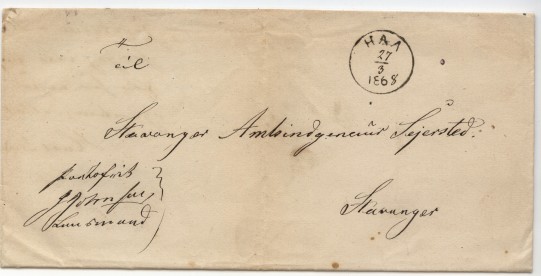 Til
HAA
27
3
1868
Stavanger Amtsindgenieur Sejersted.
Portofrit
Lensmand
Stavanger